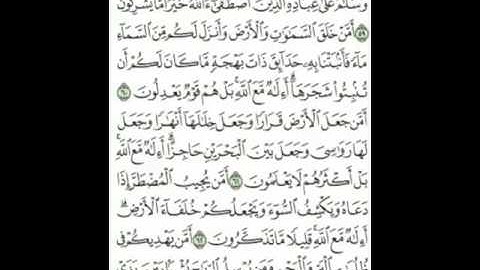 وَسَلَٰمٌ عَلَىٰ عِبَادِهِ ٱلَّذِينَ ٱصْطَفَىٰٓ ءَآللَّهُ خَيْرٌ أَمَّا يُشْرِكُونَ
٥٩ أَمَّنْ خَلَقَ ٱلسَّمَٰوَٰتِ وَٱلْأَرْضَ وَأَنزَلَ لَكُم مِّنَ ٱلسَّمَآءِ
مَآءً فَأَنۢبَتْنَا بِهِۦ حَدَآئِقَ ذَاتَ بَهْجَةٍ مَّا كَانَ لَكُمْ أَن
تُنۢبِتُوا۟ شَجَرَهَآ أَءِلَٰهٌ مَّعَ ٱللَّهِ بَلْ هُمْ قَوْمٌ يَعْدِلُونَ ٦٠
أَمَّن جَعَلَ ٱلْأَرْضَ قَرَارًا وَجَعَلَ خِلَٰلَهَآ أَنْهَٰرًا وَجَعَلَ
لَهَا رَوَٰسِىَ وَجَعَلَ بَيْنَ ٱلْبَحْرَيْنِ حَاجِزًا أَءِلَٰهٌ مَّعَ ٱللَّهِ
بَلْ أَكْثَرُهُمْ لَا يَعْلَمُونَ ٦١ أَمَّن يُجِيبُ ٱلْمُضْطَرَّ إِذَا
دَعَاهُ وَيَكْشِفُ ٱلسُّوٓءَ وَيَجْعَلُكُمْ خُلَفَآءَ ٱلْأَرْضِ
أَءِلَٰهٌ مَّعَ ٱللَّهِ قَلِيلًا مَّا تَذَكَّرُونَ ٦٢ أَمَّن يَهْدِيكُمْ فِى
ظُلُمَٰتِ ٱلْبَرِّ وَٱلْبَحْرِ وَمَن يُرْسِلُ ٱلرِّيَٰحَ بُشْرًۢا بَيْنَ يَدَىْ